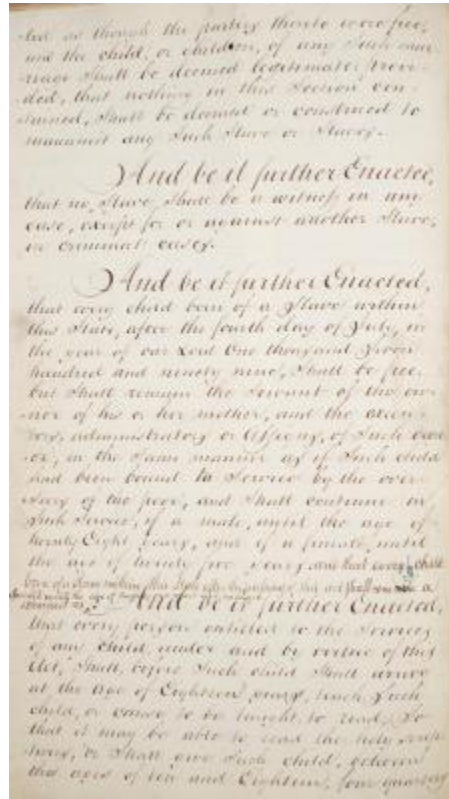 led as though the parties thereto were free,
and the child, or children, of any Such mar-
riage Shall be deemed legitimate: Provi-
ded, that nothing in this Section con-
tained, Shall be deemed or construed to
manumit any Such Slave or Slaves.
And be it further Enacted,
that no Slave Shall be a witness in any
case, except for or against another Slave,
in criminal cases.
And be it further Enacted,
that every child born of a Slave within
this State, after the fourth day of July, in
the year of our Lord One thousand Seven
hundred and ninety nine, Shall be free,
but Shall remain the Servant of the ow-
ner of his or her mother, and the execu-
tors, administrators or Assigns, of Such own-
er, in the Same manner as if Such child
had been bound to Service by the over-
Seers of the poor, and Shall continue in
Such Service, if a male, until the age of
twenty Eight years, and if a female, until
the age of twenty five years, and that every child
born of a Slave within this State after the passing of this act Shall remain a
And be it further Enacted,
that every person entitled to the Service
of any child, under and by virtue of this
Act, Shall, before Such child Shall arrive
at the age of Eighteen years, teach Such
child, or cause to be taught, to read, So
that it may be able to read the holy Scrip-
tures, or Shall give Such child, between
the ages of ten and Eighteen, four quarters